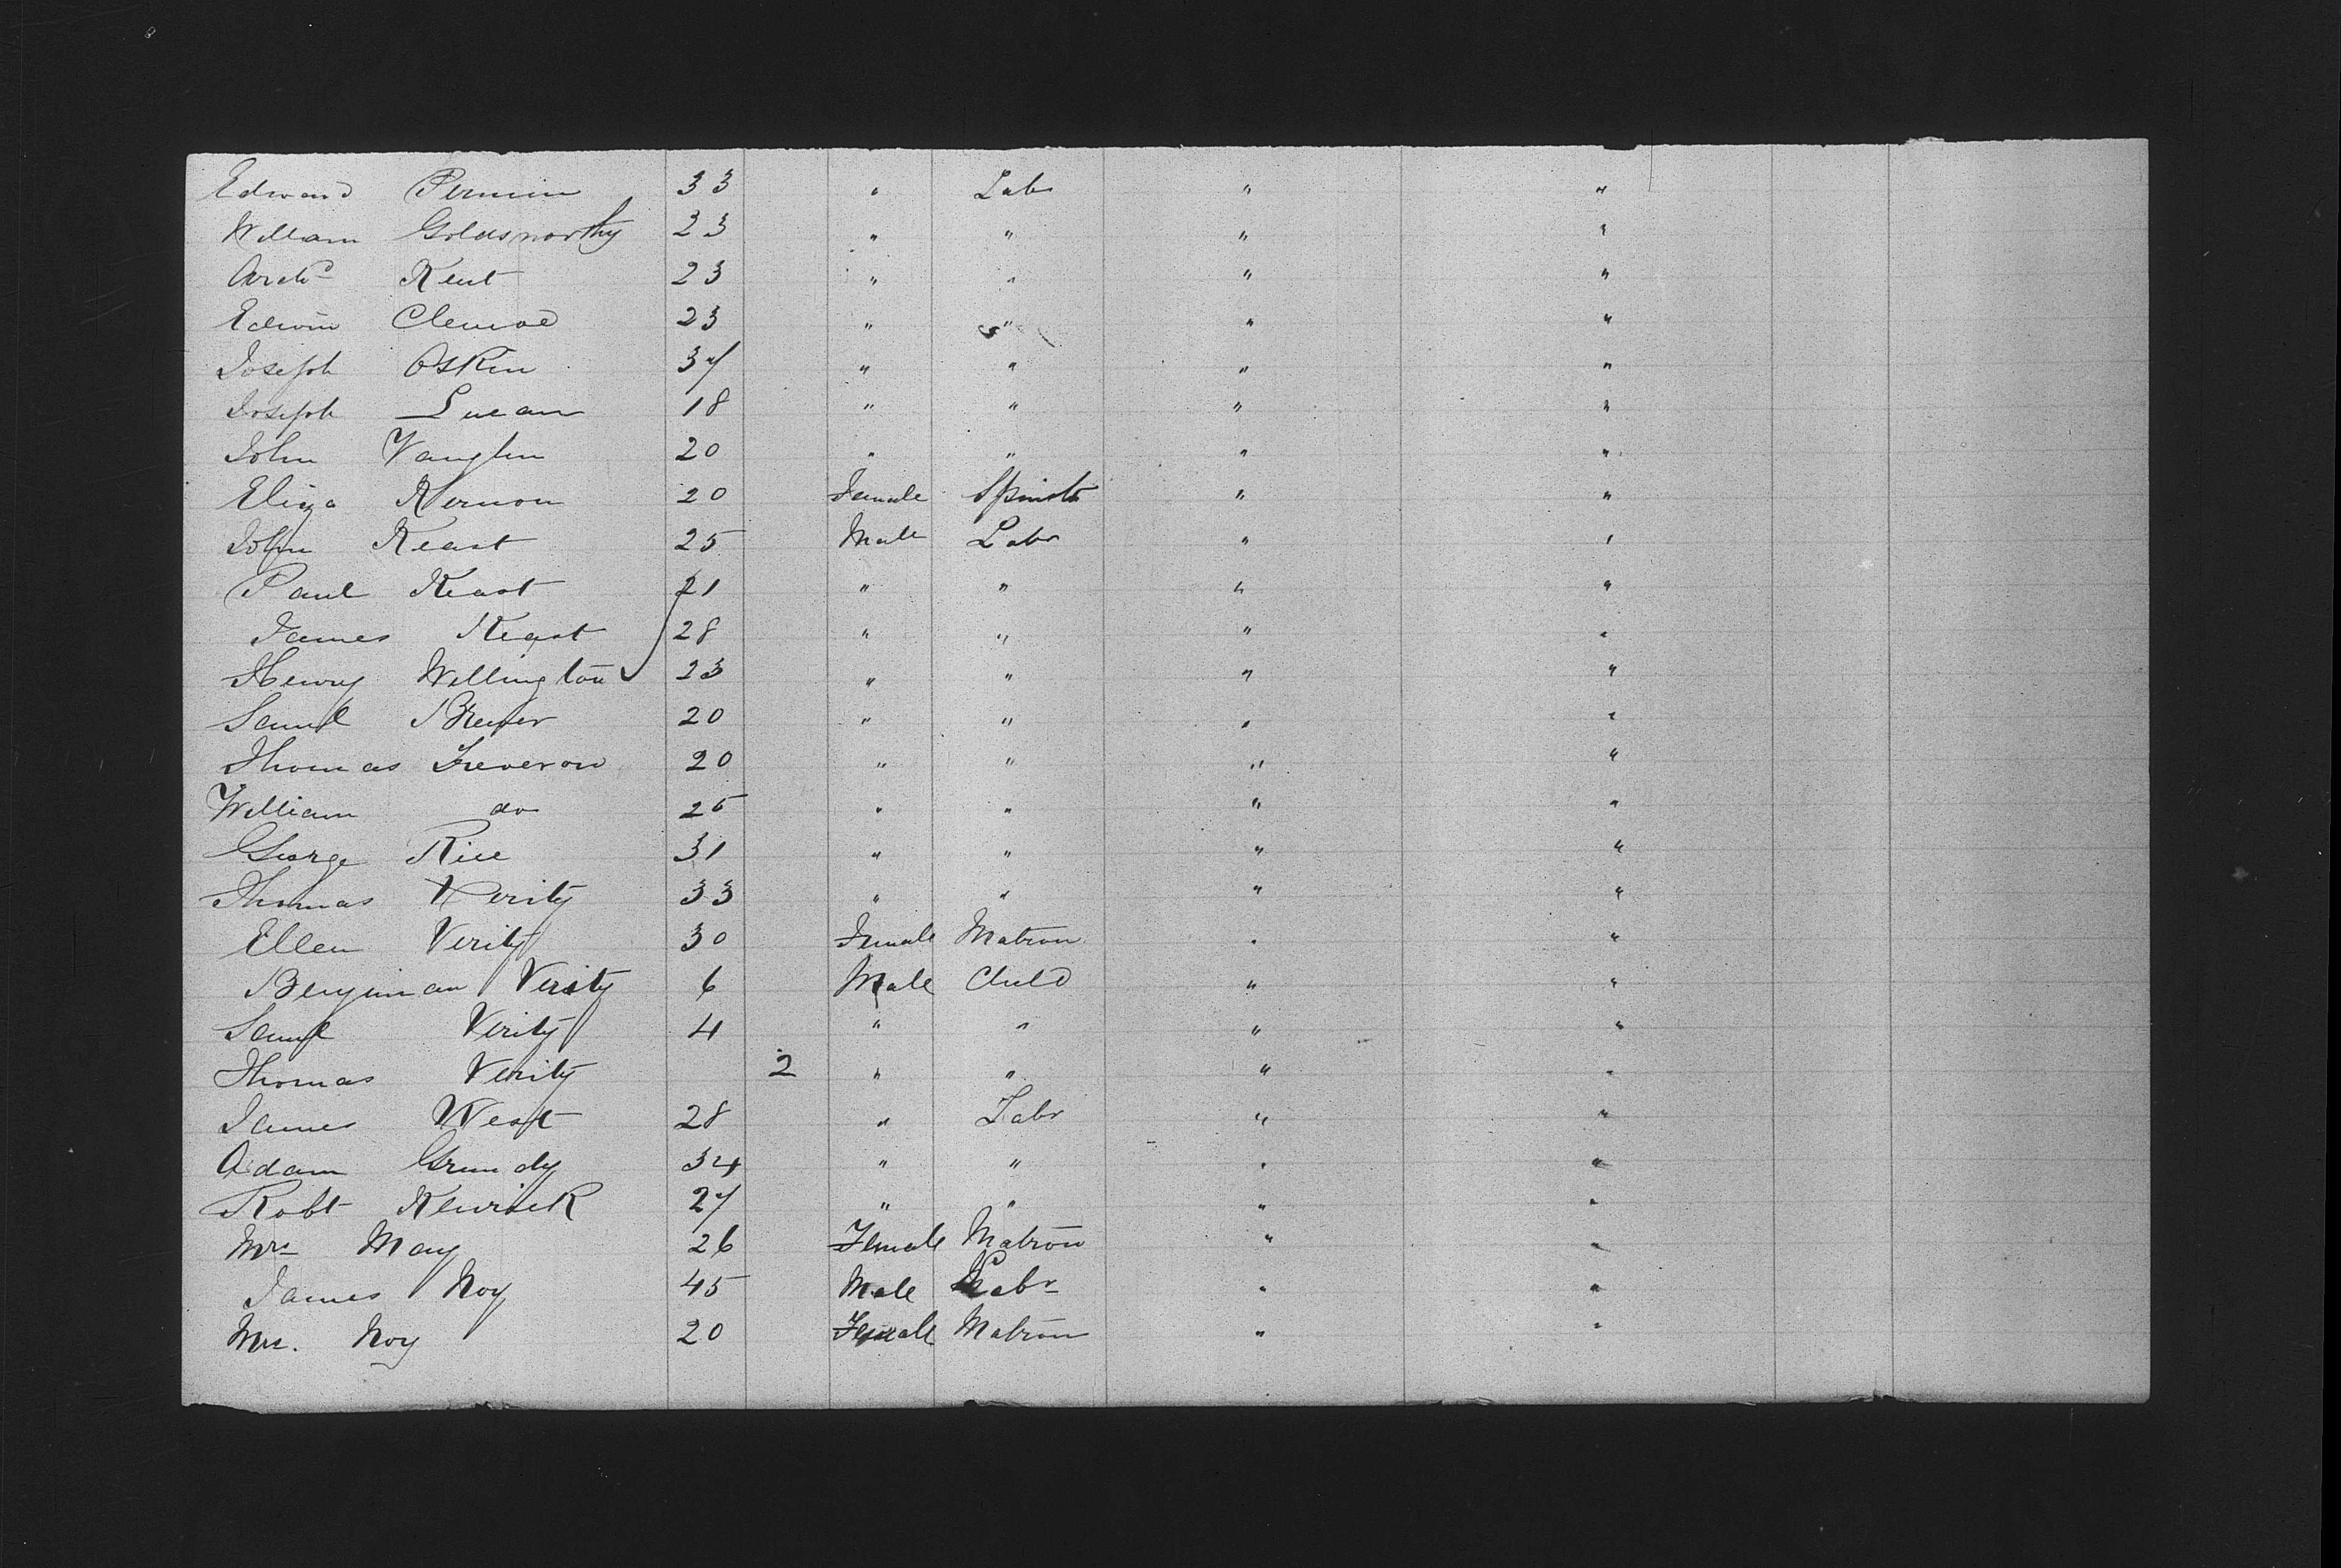 Edward Permin 33 " Labr " "
William Goldsworthy 23 " " " "
Archd Kent 23 " " " "
Edwin Clemoe 23 " " " "
Joseph Oskin 37 " " " "
Joseph Lucan 18 " " " "
John Vaughn 20 " " " "
Eliza Kernon 20 Female Spinstr " "
John Keast 25 Male Labr " "
Paul Keast 21 " " " "
James Keast 28 " " " "
Henry Wellington 23 " " " "
Saml Brewer 20 " " " "
Thomas Treveron 20 " " " "
William do 25 " " " "
George Rice 31 " " " "
Thomas Verity 33 " " " "
Ellen Verity 30 Female Matron " "
Benjiman Verity 6 Male Child " "
Saml Verity 4 " " " "
Thomas Verity 2 " " " "
James West 28 " Labr " "
Adam Grundy 34 " " " "
Robt 27 " " " "
Mrs May 26 Female Matron " "
James Noy 45 Male Labr " "
Mrs. Noy 20 Female Matron " "